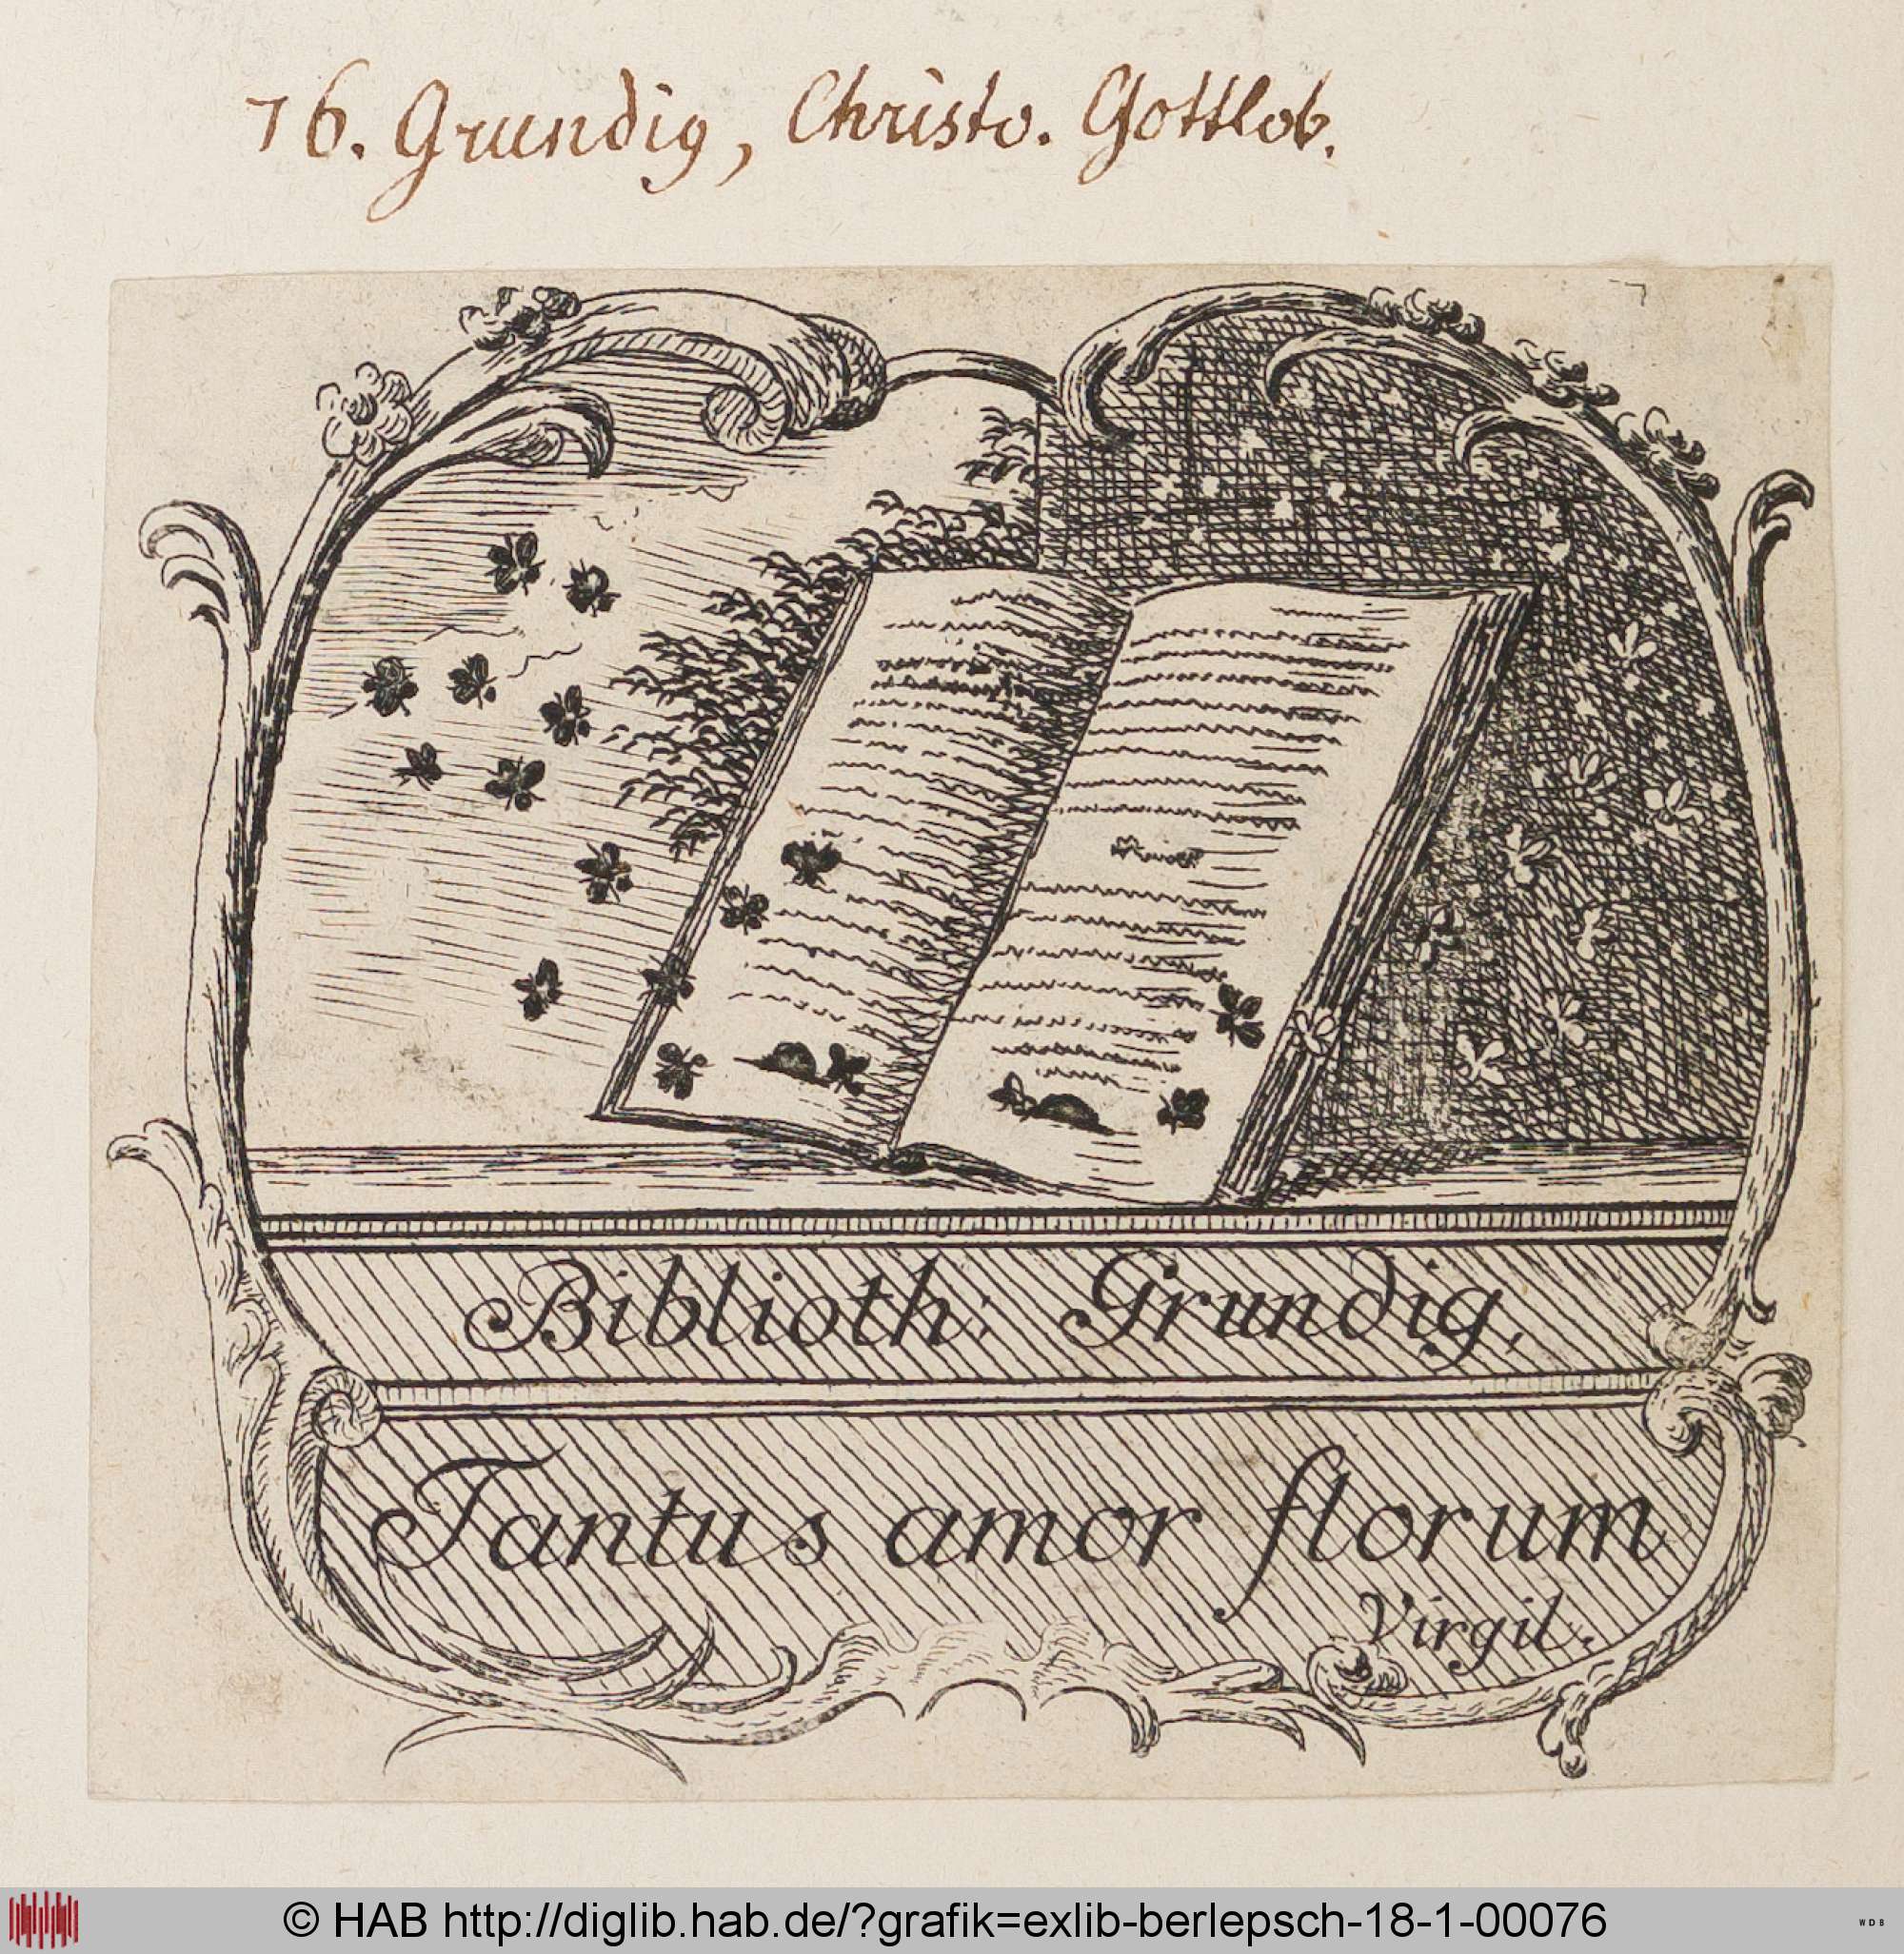 76. Grundig, Christo. Gottlob.
Biblioth: Grundig,
Tantus amor florum
Virgil.
© HAB http://diglib.hab.de/?grafik=exlib-berlepsch-18-1-00076
WDB